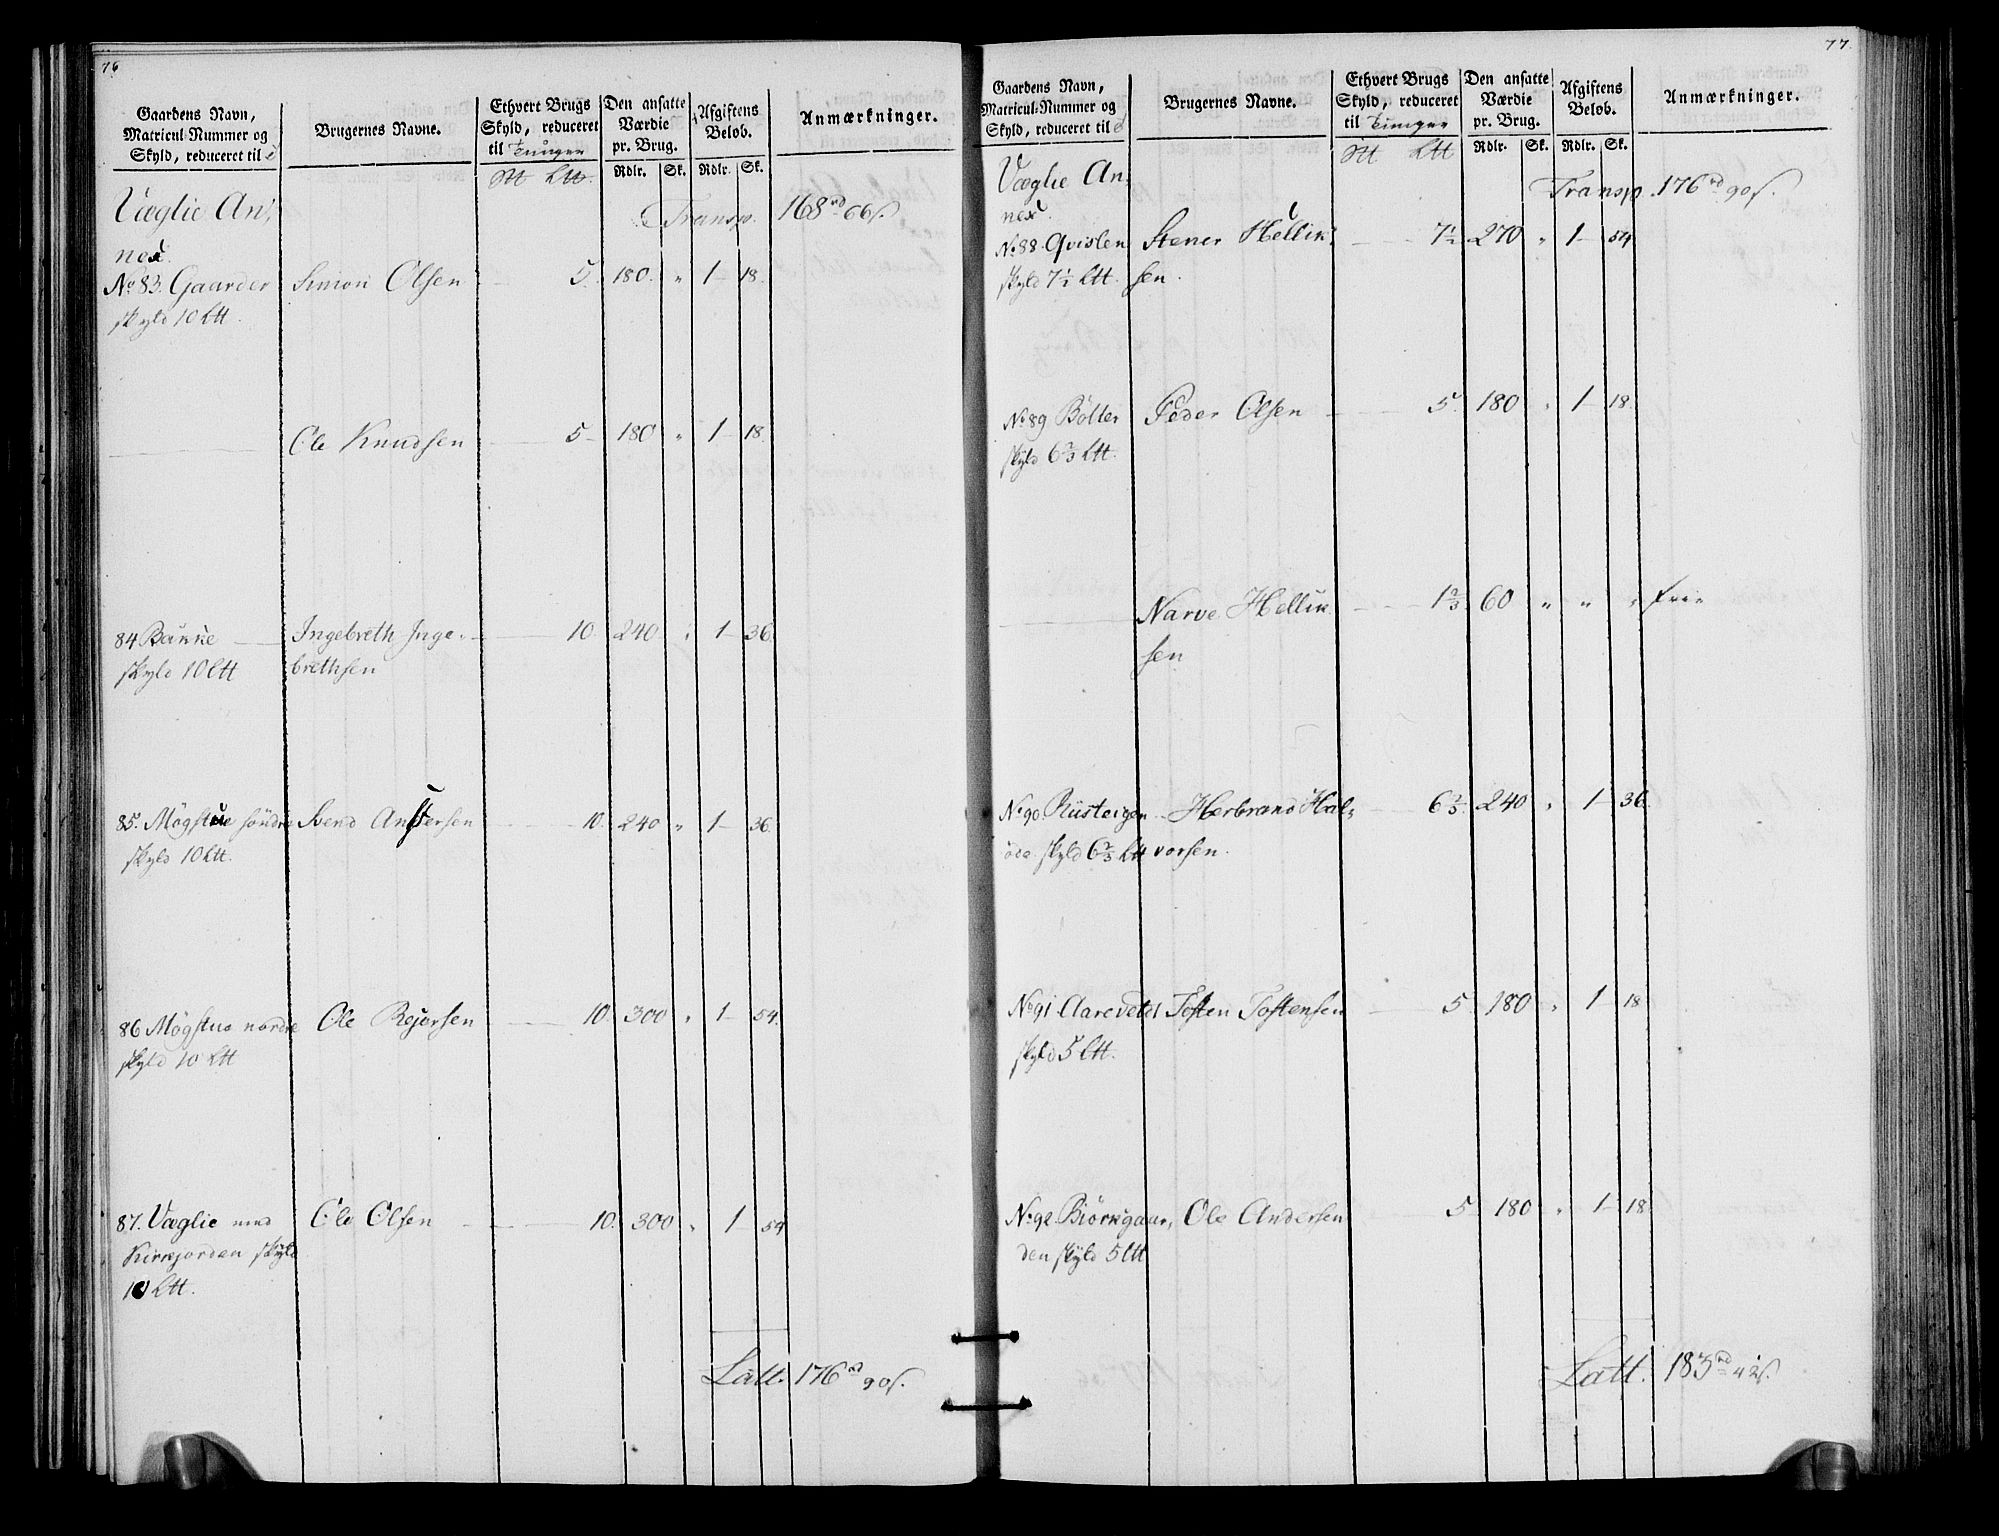 76
Gaardens Navn, Matricul-Nummer og Skyld, reduceret til
Brugernes Navne.
Ethvert Brugs Skyld, reduceret til Tunger
Den ansatte Værdie pr. Brug.
Afgiftens Beløb.
Anmærkninger.
Rdlr. Sk. Rdlr. Sk.
Ltt.
Væglie An-
nex.
Transp. 168 rd 66 s.
No 83. Gaarder Simon Olsen 5. 180. " 1 18.
skyld 10 Ltt.
Ole Knudsen 5 180 " 1 18.
84 Bünne Ingebreth Inge- 10. 240 " 1 36.
skyld 10 Ltt brethsen
85. Møgstue søndre Svend Andersen 10. 240 " 1 36.
skyld 10 Ltt.
86 Møgstue nordre Ole Rejersen 10 300 " 1 54.
skyld 10 Ltt
87. Væglie med Ole Olsen 10. 300 " 1 54
Kirkejorden skyld
10 Ltt.
Latt. 176 rd 90 s.
77.
Gaardens Navn, Matricul-Nummer og Skyld, reduceret til
Brugernes Navne.
Ethvert Brugs Skyld, reduceret til Tunger
Den ansatte Værdie pr. Brug.
Afgiftens Beløb.
Anmærkninger.
Rdlr. Sk. Rdlr. Sk.
Ltt
Væglie An-
nex.
Transp. 176 rd 90 s.
No 88. Qvislen Stener Hellik- 7½ 270 " 1 54
skyld 7½ Ltt. sen.
No 89 Bölter Peder Olsen 5. 180 " 1 18.
skyld 6⅔ Ltt.
Narve Hellik 1⅔ 60 " " " frie
sen
No 90. Rusteigen Herbrand Hal- 6⅔ 240 " 1 36.
øde. skyld 6⅔ Ltt vorsen.
No 91 Aareveld Tosten Tostensen 5 180 " 1 18
skyld 5 Ltt.
No 92. Biørkgaar- Ole Andersen 5 180 " 1 18
den skyld 5 Ltt
Latt. 183 rd 42 s.